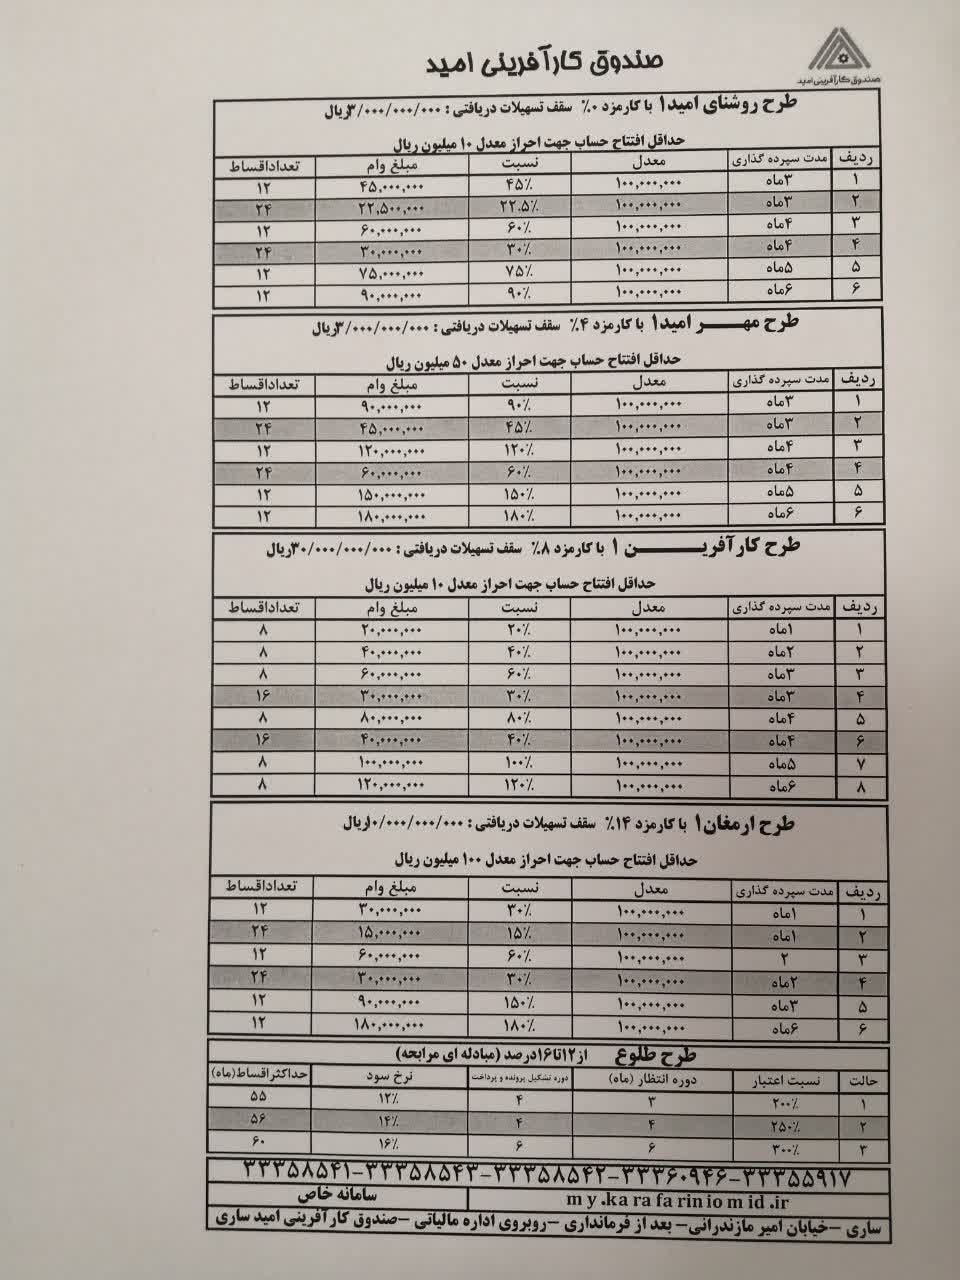 صندوق کارآفرینی امید
صندوق کارآفرینی امید
طرح روشنای امید۱ با کارمزد ۰٪ سقف تسهیلات دریافتی : ۳/۰۰۰/۰۰۰/۰۰۰ریال
حداقل افتتاح حساب جهت احراز معدل ۱۰ میلیون ریال
ردیف مدت سپرده گذاری معدل نسبت مبلغ وام تعداداقساط
۱ ۳ماه ۱۰۰,۰۰۰,۰۰۰ ۴۵٪ ۴۵,۰۰۰,۰۰۰ ۱۲
۲ ۳ماه ۱۰۰,۰۰۰,۰۰۰ ۲۲.۵٪ ۲۲,۵۰۰,۰۰۰ ۲۴
۳ ۴ماه ۱۰۰,۰۰۰,۰۰۰ ۶۰٪ ۶۰,۰۰۰,۰۰۰ ۱۲
۴ ۴ماه ۱۰۰,۰۰۰,۰۰۰ ۳۰٪ ۳۰,۰۰۰,۰۰۰ ۲۴
۵ ۵ماه ۱۰۰,۰۰۰,۰۰۰ ۷۵٪ ۷۵,۰۰۰,۰۰۰ ۱۲
۶ ۶ماه ۱۰۰,۰۰۰,۰۰۰ ۹۰٪ ۹۰,۰۰۰,۰۰۰ ۱۲
طرح مهر امید۱ با کارمزد ۴٪ سقف تسهیلات دریافتی : ۳/۰۰۰/۰۰۰/۰۰۰ریال
حداقل افتتاح حساب جهت احراز معدل ۵۰ میلیون ریال
ردیف مدت سپرده گذاری معدل نسبت مبلغ وام تعداداقساط
۱ ۳ماه ۱۰۰,۰۰۰,۰۰۰ ۹۰٪ ۹۰,۰۰۰,۰۰۰ ۱۲
۲ ۳ماه ۱۰۰,۰۰۰,۰۰۰ ۴۵٪ ۴۵,۰۰۰,۰۰۰ ۲۴
۳ ۴ماه ۱۰۰,۰۰۰,۰۰۰ ۱۲۰٪ ۱۲۰,۰۰۰,۰۰۰ ۱۲
۴ ۴ماه ۱۰۰,۰۰۰,۰۰۰ ۶۰٪ ۶۰,۰۰۰,۰۰۰ ۲۴
۵ ۵ماه ۱۰۰,۰۰۰,۰۰۰ ۱۵۰٪ ۱۵۰,۰۰۰,۰۰۰ ۱۲
۶ ۶ماه ۱۰۰,۰۰۰,۰۰۰ ۱۸۰٪ ۱۸۰,۰۰۰,۰۰۰ ۱۲
طرح کارآفرین ۱ با کارمزد ۸٪ سقف تسهیلات دریافتی : ۳۰/۰۰۰/۰۰۰/۰۰۰ریال
حداقل افتتاح حساب جهت احراز معدل ۱۰ میلیون ریال
ردیف مدت سپرده گذاری معدل نسبت مبلغ وام تعداداقساط
۱ ۱ماه ۱۰۰,۰۰۰,۰۰۰ ۲۰٪ ۲۰,۰۰۰,۰۰۰ ۸
۲ ۲ماه ۱۰۰,۰۰۰,۰۰۰ ۴۰٪ ۴۰,۰۰۰,۰۰۰ ۸
۳ ۳ماه ۱۰۰,۰۰۰,۰۰۰ ۶۰٪ ۶۰,۰۰۰,۰۰۰ ۸
۴ ۳ماه ۱۰۰,۰۰۰,۰۰۰ ۳۰٪ ۳۰,۰۰۰,۰۰۰ ۱۶
۵ ۴ماه ۱۰۰,۰۰۰,۰۰۰ ۸۰٪ ۸۰,۰۰۰,۰۰۰ ۸
۶ ۴ماه ۱۰۰,۰۰۰,۰۰۰ ۴۰٪ ۴۰,۰۰۰,۰۰۰ ۱۶
۷ ۵ماه ۱۰۰,۰۰۰,۰۰۰ ۱۰۰٪ ۱۰۰,۰۰۰,۰۰۰ ۸
۸ ۶ماه ۱۰۰,۰۰۰,۰۰۰ ۱۲۰٪ ۱۲۰,۰۰۰,۰۰۰ ۸
طرح ارمغان۱ با کارمزد ۱۴٪ سقف تسهیلات دریافتی : ۱۰/۰۰۰/۰۰۰/۰۰۰ریال
حداقل افتتاح حساب جهت احراز معدل ۱۰۰ میلیون ریال
ردیف مدت سپرده گذاری معدل نسبت مبلغ وام تعداداقساط
۱ ۱ماه ۱۰۰,۰۰۰,۰۰۰ ۳۰٪ ۳۰,۰۰۰,۰۰۰ ۱۲
۲ ۱ماه ۱۰۰,۰۰۰,۰۰۰ ۱۵٪ ۱۵,۰۰۰,۰۰۰ ۲۴
۳ ۲ ۱۰۰,۰۰۰,۰۰۰ ۶۰٪ ۶۰,۰۰۰,۰۰۰ ۱۲
۴ ۲ماه ۱۰۰,۰۰۰,۰۰۰ ۳۰٪ ۳۰,۰۰۰,۰۰۰ ۲۴
۵ ۳ماه ۱۰۰,۰۰۰,۰۰۰ ۱۵۰٪ ۹۰,۰۰۰,۰۰۰ ۱۲
۶ ۶ماه ۱۰۰,۰۰۰,۰۰۰ ۱۸۰٪ ۱۸۰,۰۰۰,۰۰۰ ۱۲
طرح طلوع از۱۲تا۱۶درصد (مبادله ای مرابحه)
حالت نسبت اعتبار دوره انتظار (ماه) دوره تشکیل پرونده و پرداخت نرخ سود حداکثراقساط(ماه)
۱ ۲۰۰٪ ۳ ۴ ۱۲٪ ۵۵
۲ ۲۵۰٪ ۴ ۴ ۱۴٪ ۵۶
۳ ۳۰۰٪ ۶ ۶ ۱۶٪ ۶۰
۳۳۳۵۸۵۴۱-۳۳۳۵۸۵۴۳-۳۳۳۵۸۵۴۲-۳۳۳۶۰۹۴۶-۳۳۳۵۵۹۱۷
my.karafariniomid.ir سامانه خاص
ساری –خیابان امیر مازندرانی– بعد از فرمانداری –روبروی اداره مالیاتی –صندوق کارآفرینی امید ساری